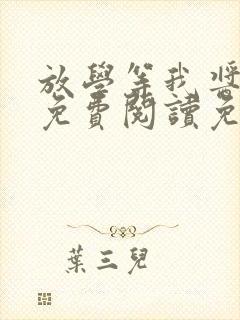 放學等我 醬
免費閱讀免
葉三兒